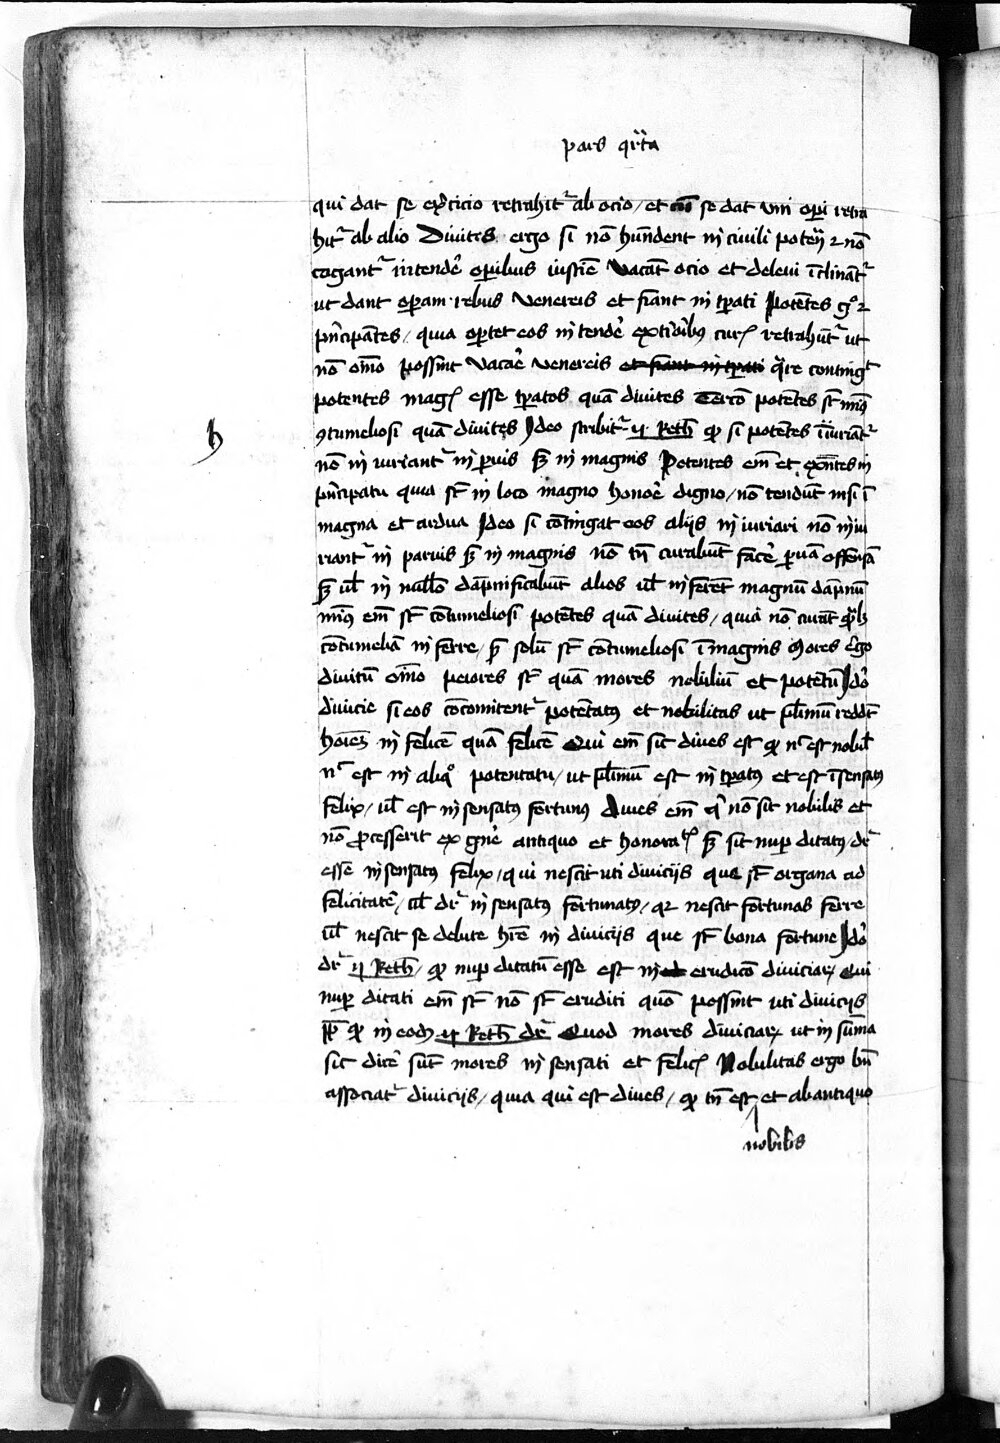 pars qrta
qui dat se exercicio retrahitr ab ocio / et cu se dat vni opi retra
hitr ab alio Diuites ergo si no hundent in ciuili poten z no
cogantr intende opibus iustie vacat ocio et deleui iclinatr
ut dant opam rebus venereis et fiant in tpati Potetes g z
pncipates / quia optet eos intende extioibus cur retrahutr ut
no omo possint vacare venereis et fiant in tpati qre contingt
potentes mag esse tpatos qua diuites Tercio potetes st min
9tumeliosi qua diuites Ideo scribitr ij Reth q si potetes iiuriatr
no in iuriantr in puis sz in magnis Potentes em et exntes in
pncipatu quia st in loco magno honoe digno / no tendut nisi i
magna et ardua Ideo si cotingat eos alijs in iuriari no iniu
riantr in paruis sz in magnis no tn curabut face pua offensa
sz ul in nullo dapnificabut alios ul inferet magnu dapnu
min em st cotumeliosi potetes qua diuites / quia no curat qlz
cotumelia inferre / sz solu st cotumeliosi i magnis Mores ergo
diuitu omo peiores st qua mores nobiliu et potetu Ido
diuicie si eos cocomitentr potetatus et nobilitas ut plimu reddt
hoiez in felice qua felice Qui em sic diues est q nc est nobil
nc est in aliqo potentatu / ut plimu est intpatus et est isensatus
felix / ul est insensatus fortunus Diues em q no sit nobilis et
no pcesserit ex gne antiquo et honorat sz sit nup ditatus / dr
esse insensatus felix / qui nescit uti diuicijs que st organa ad
felicitate / ul dr insensatus fortunatus / qz nescit fortunas ferre
ul nescit se debite hre in diuicijs que st bona fortune Ido
dr ij Reth / q nup ditatu esse est in erudico diuiciar Qui
nup ditati em st no st eruditi quo possint uti diuicijs
pp q in eod ij Reth dr Quod mores diuiciar ut in suma
sit dice sut mores insensati et felic Nobilitas ergo bn
associatr diuicijs / quia qui est diues / q tn est et ab antiquo
nobilis